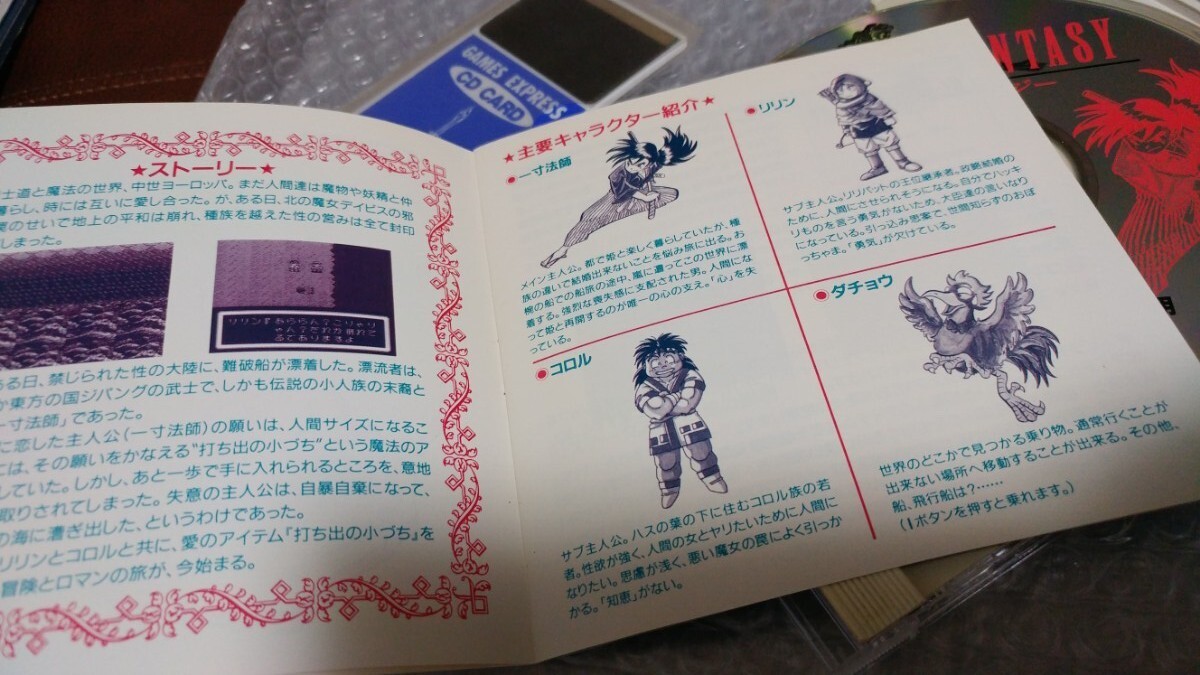 ★ストーリー★
士道と魔法の世界、中世ヨーロッパ。まだ人間達は魔物や妖精と仲
暮らし、時には互いに愛し合った。が、ある日、北の魔女デイビスの邪
のせいで地上の平和は崩れ、種族を越えた性の営みは全て封印
しまった。
ある日、禁じられた性の大陸に、難破船が漂着した。漂流者は、
か東方の国ジパングの武士で、しかも伝説の小人族の末裔と
一寸法師」であった。
に恋した主人公(一寸法師)の願いは、人間サイズになるこ
には、その願いをかなえる"打ち出の小づち"という魔法のア
していた。しかし、あと一歩で手に入れられるところを、意地
取りされてしまった。失意の主人公は、自暴自棄になって、
の海に漕ぎ出した、というわけであった。
リリンとコロルと共に、愛のアイテム「打ち出の小づち」を
冒険とロマンの旅が、今始まる。
★主要キャラクター紹介★
●一寸法師
メイン主人公。都で姫と楽しく暮らしていたが、種
族の違いで結婚出来ないことを悩み旅に出る。お
椀の船での船旅の途中、嵐に遭ってこの世界に漂
着する。強烈な喪失感に支配された男。人間にな
って姫と再開するのが唯一の心の支え。「心」を失
っている。
●リリン
サブ主人公。リリパットの王位継承者。政略結婚の
ために、人間にさせられそうになる。自分でハッキ
リものを言う勇気がないため、大臣達の言いなり
になっている。引っ込み思案で、世間知らずのおぼ
っちゃま。「勇気」が欠けている。
●コロル
サブ主人公。ハスの葉の下に住むコロル族の若
者。性欲が強く、人間の女とヤリたいために人間に
なりたい。思慮が浅く、悪い魔女の罠によく引っか
かる。「知恵」がない。
●ダチョウ
世界のどこかで見つかる乗り物。通常行くことが
出来ない場所へ移動することが出来る。その他、
船、飛行船は?……
(Iボタンを押すと乗れます。)
GAMES EXPRESS
CD CARD
NTASY